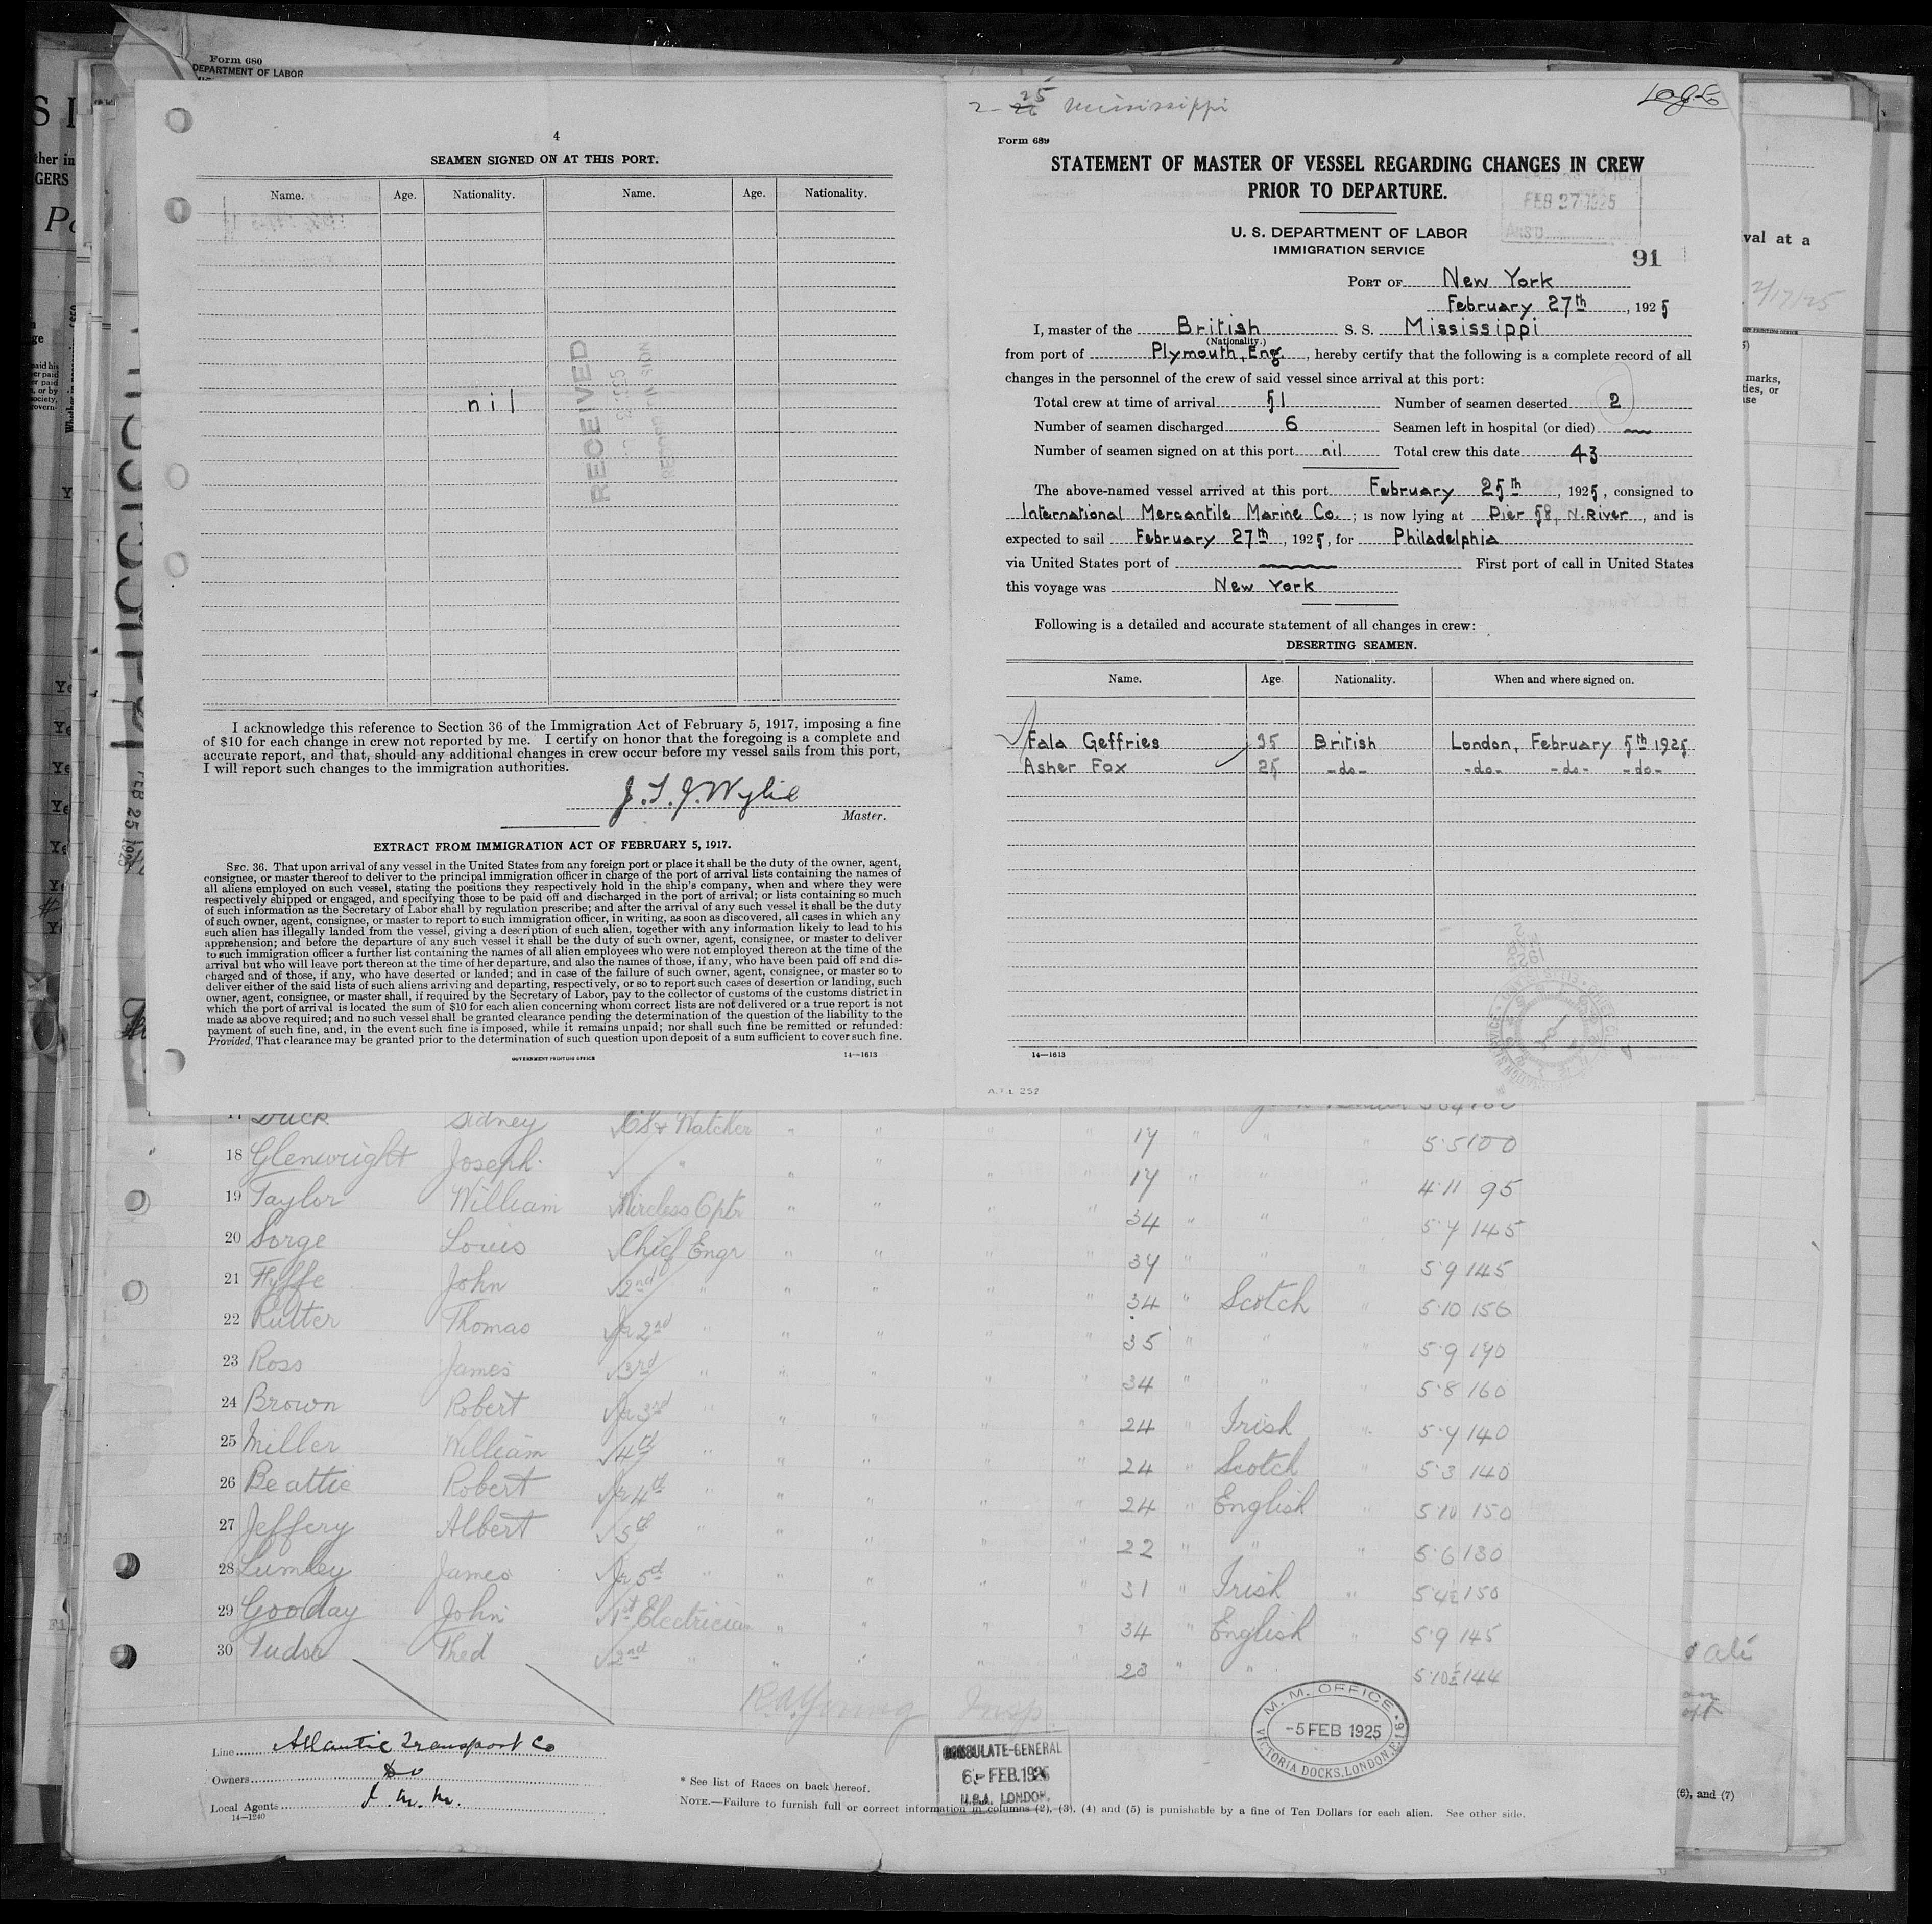 Form 680
DEPARTMENT OF LABOR
4
SEAMEN SIGNED ON AT THIS PORT.
Name. Age. Nationality. Name. Age. Nationality.
nil
RECEIVED
I acknowledge this reference to Section 36 of the Immigration Act of February 5, 1917, imposing a fine
of $10 for each change in crew not reported by me. I certify on honor that the foregoing is a complete and
accurate report, and that, should any additional changes in crew occur before my vessel sails from this port,
I will report such changes to the immigration authorities.
J. T. J. Wylie
Master.
EXTRACT FROM IMMIGRATION ACT OF FEBRUARY 5, 1917.
SEC. 36. That upon arrival of any vessel in the United States from any foreign port or place it shall be the duty of the owner, agent,
consignee, or master thereof to deliver to the principal immigration officer in charge of the port of arrival lists containing the names of
all aliens employed on such vessel, stating the positions they respectively hold in the ship's company, when and where they were
respectively shipped or engaged, and specifying those to be paid off and discharged in the port of arrival; or lists containing so much
of such information as the Secretary of Labor shall by regulation prescribe; and after the arrival of any such vessel it shall be the duty
of such owner, agent, consignee, or master to report to such immigration officer, in writing, as soon as discovered, all cases in which any
such alien has illegally landed from the vessel, giving a description of such alien, together with any information likely to lead to his
apprehension; and before the departure of any such vessel it shall be the duty of such owner, agent, consignee, or master to deliver
to such immigration officer a further list containing the names of all alien employees who were not employed thereon at the time of the
arrival but who will leave port thereon at the time of her departure, and also the names of those, if any, who have been paid off and dis-
charged and of those, if any, who have deserted or landed; and in case of the failure of such owner, agent, consignee, or master so to
deliver either of the said lists of such aliens arriving and departing, respectively, or so to report such cases of desertion or landing, such
owner, agent, consignee, or master shall, if required by the Secretary of Labor, pay to the collector of customs of the customs district in
which the port of arrival is located the sum of $10 for each alien concerning whom correct lists are not delivered or a true report is not
made as above required; and no such vessel shall be granted clearance pending the determination of the question of the liability to the
payment of such fine, and, in the event such fine is imposed, while it remains unpaid; nor shall such fine be remitted or refunded:
Provided, That clearance may be granted prior to the determination of such question upon deposit of a sum sufficient to cover such fine.
GOVERNMENT PRINTING OFFICE 14—1613
2-25 Mississippi
Form 689
STATEMENT OF MASTER OF VESSEL REGARDING CHANGES IN CREW
PRIOR TO DEPARTURE.
FEB 27 1925
U. S. DEPARTMENT OF LABOR
IMMIGRATION SERVICE
91
PORT OF New York
February 27th, 1925
I, master of the British S. S. Mississippi
(Nationality.)
from port of Plymouth, Eng., hereby certify that the following is a complete record of all
changes in the personnel of the crew of said vessel since arrival at this port:
Total crew at time of arrival 51 Number of seamen deserted 2
Number of seamen discharged 6 Seamen left in hospital (or died) —
Number of seamen signed on at this port nil Total crew this date 43
The above-named vessel arrived at this port February 25th, 1925, consigned to
International Mercantile Marine Co.; is now lying at Pier 58, N. River, and is
expected to sail February 27th, 1925, for Philadelphia
via United States port of — First port of call in United States
this voyage was New York
Following is a detailed and accurate statement of all changes in crew:
DESERTING SEAMEN.
Name. Age. Nationality. When and where signed on.
Fala Geffries 35 British London, February 5th 1925
Asher Fox 25 -do- -do- -do- -do-
14—1613
A.T.L. 252
val at a
2/17/25
marks,
ties, or
FEB 25 1925
Duck Sidney Watcher " " 17 " " 5.5 100
18 Glenwright Joseph " " " " " 17 " " " 4.11 95
19 Taylor William Wireless Optr " " " " 34 " " " 5.7 145
20 Sorge Louis Chief Engr " " " " 37 " " 5.9 145
21 Fyffe John 2nd " " " " " 34 " Scotch " 5.10 156
22 Rutter Thomas Jr 2nd " " " " 35 " " " 5.9 190
23 Ross James 3rd " " " " " 34 " " " 5.8 160
24 Brown Robert Jr 3rd " " " " " 24 " Irish " 5.7 140
25 Miller William 4th " " " " " 24 " Scotch " 5.3 140
26 Beattie Robert Jr 4th " " " " " 24 " English " 5.10 150
27 Jeffery Albert 5th " " " " 22 " " " 5.6 130
28 Lumley James Jr 5th " " " " " 31 " Irish " 5.4½ 150
29 Gooday John 1st Electrician " " " " 34 " English " 5.9 145
30 Tudor Fred 2nd " " " " 23 " " 5.10½ 144
Insp.
Line Atlantic Transport Co
Owners Do
Local Agents I. M. M.
14—1240
* See list of Races on back hereof.
CONSULATE-GENERAL
6 - FEB. 1925
U.S.A. LONDON.
M. M. OFFICE
-5 FEB 1925
VICTORIA DOCKS, LONDON, E. 16
NOTE.—Failure to furnish full or correct information in columns (2), (3), (4) and (5) is punishable by a fine of Ten Dollars for each alien. See other side.
(6), and (7)